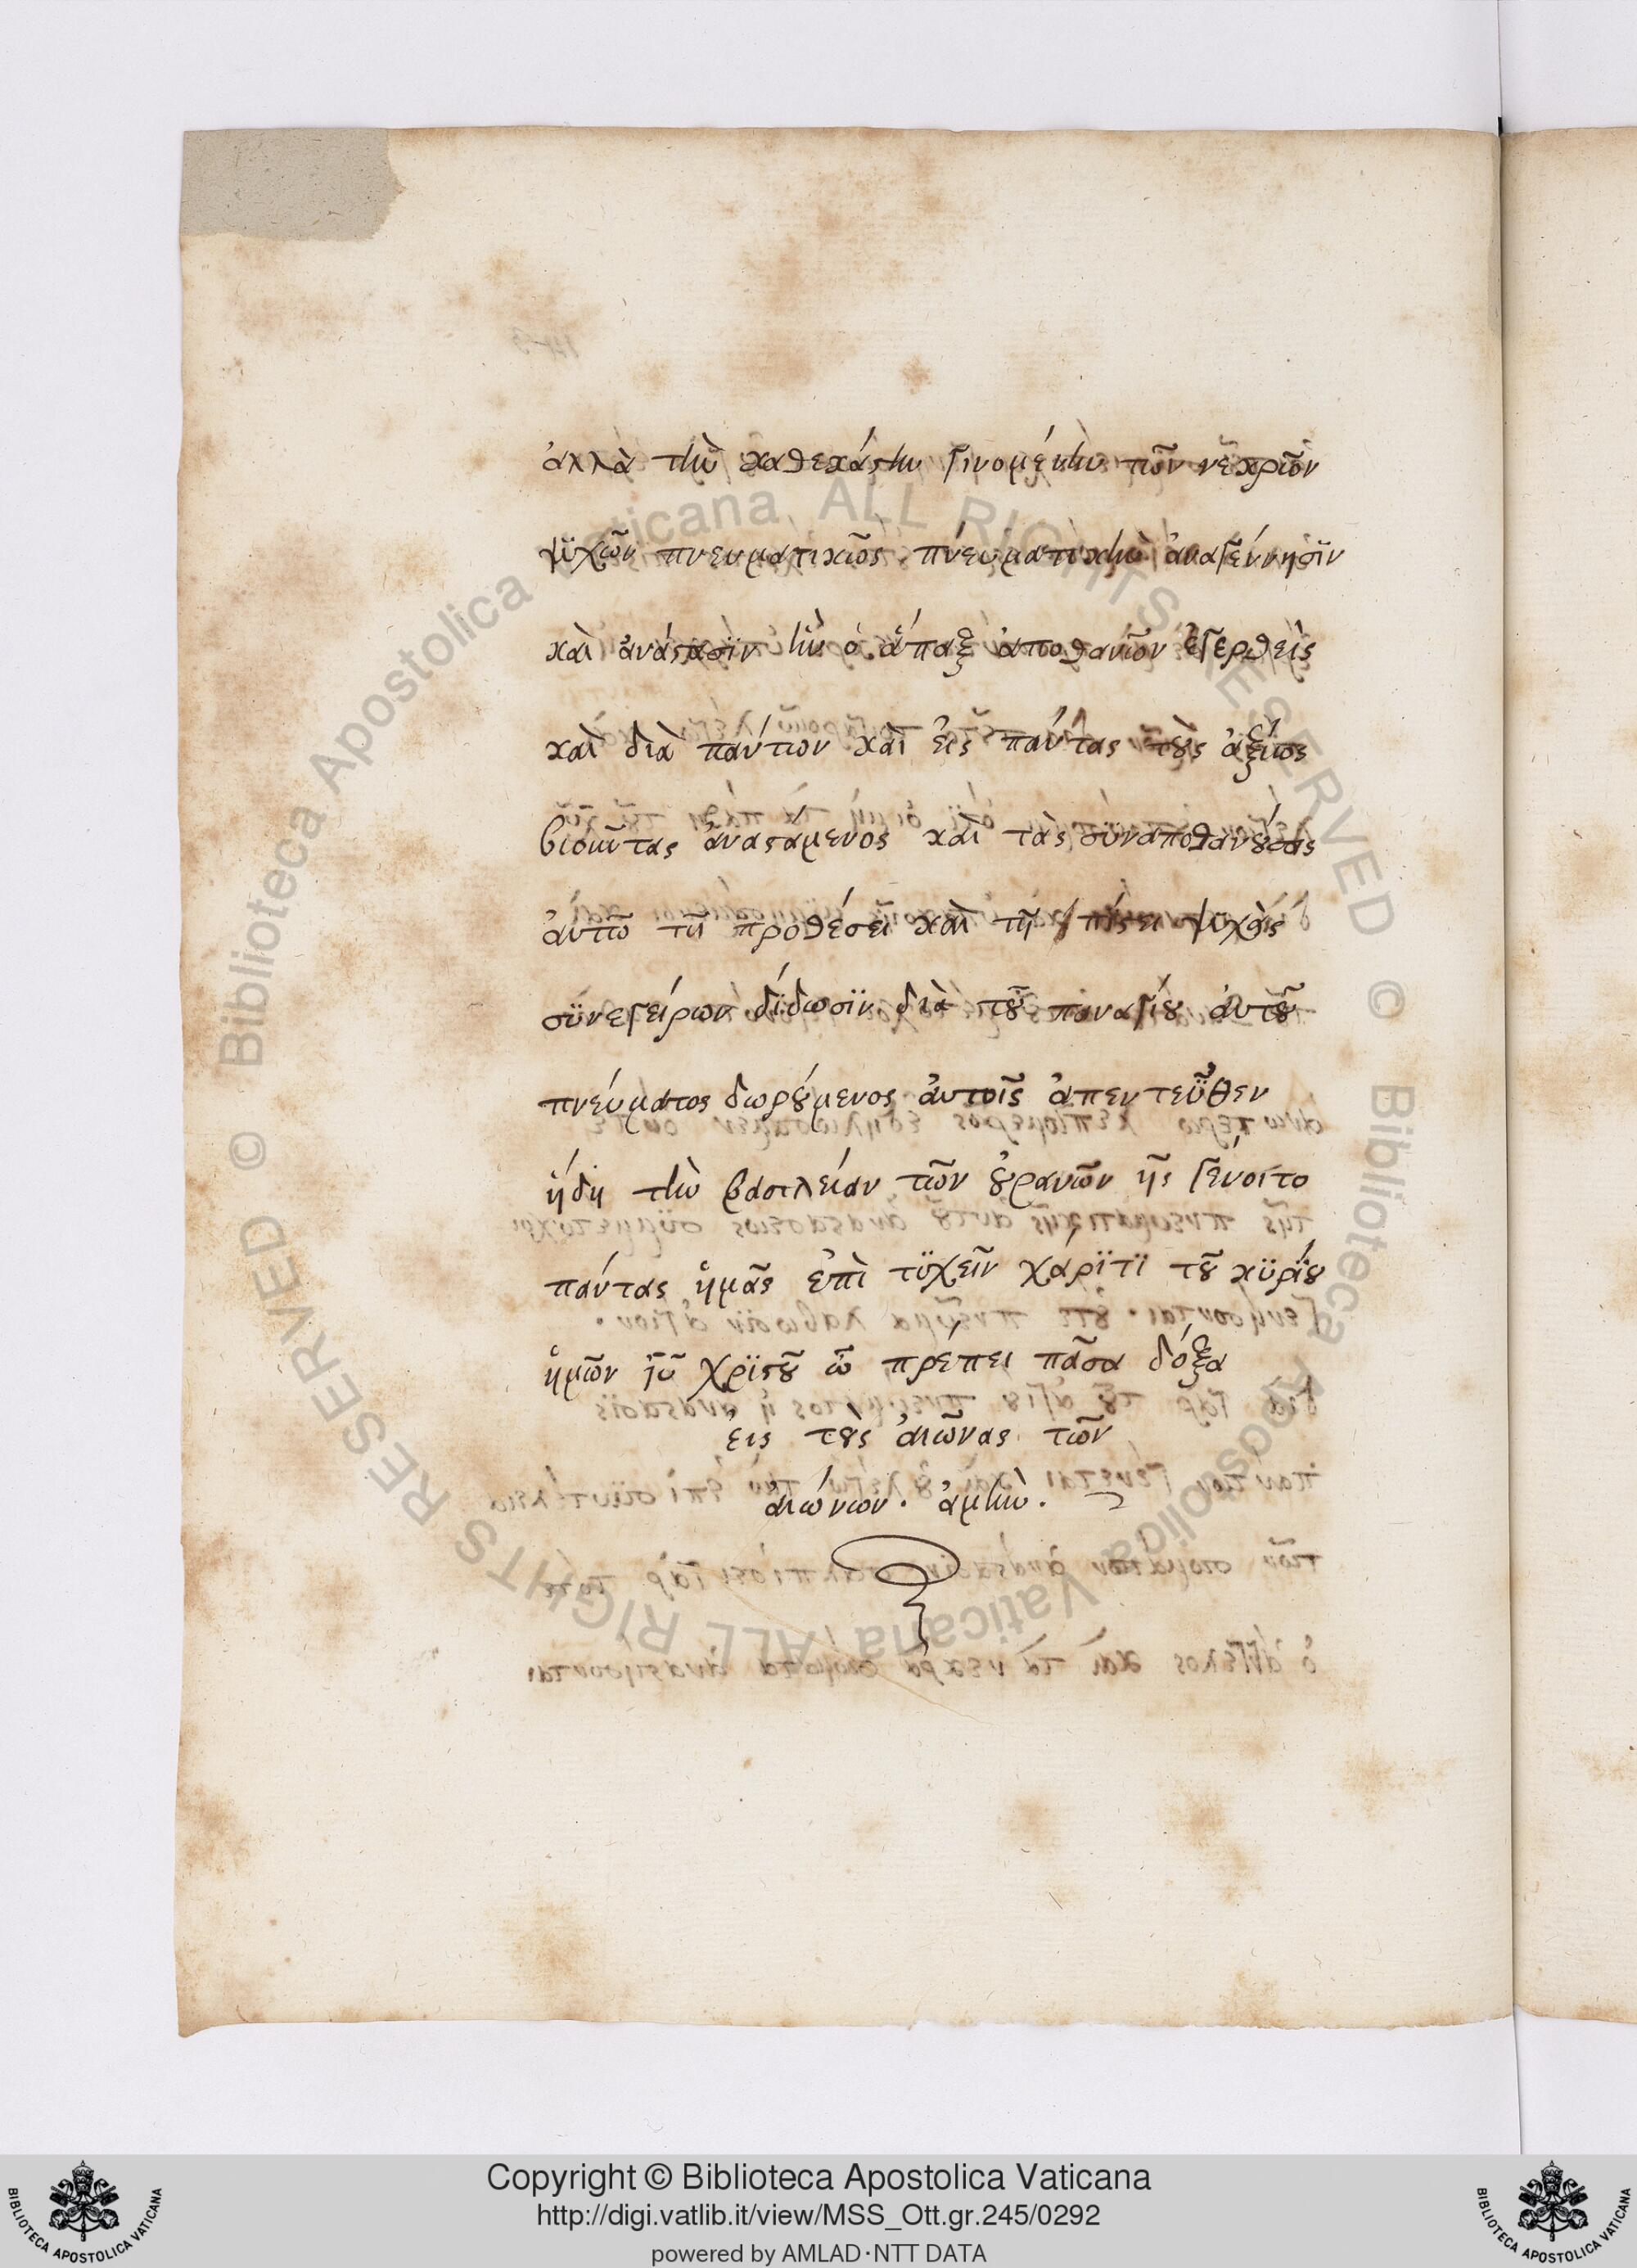 ἀλλὰ τὴν καθεκάστην γινομένην τῶν νεκρῶν
ψϋχῶν πνευματικῶς πνευματικὴν ἀναγέννησϊν
καὶ ἀνάστασϊν ἣν ὁ ἅπαξ ἀποθανῶν ἐγερθεὶς
καὶ διὰ πάντων καὶ εἰς πάντας τοὺς ἀξίως
βιοῦντας ἀναστάμενος καὶ τὰς σϋναποθανούσας
ἀυτῶ τῆ προθέσει καὶ τῆ πίστει ψυχὰς
σϋνεγείρων δίδωσϊν διὰ τοῦ παναγίου ἀυτοῦ
πνεύματος δωρούμενος ἀυτοῖς ἀπεντεῦθεν
ἤδη τὴν βασιλείαν τῶν οὐρανῶν ἧς γένοιτο
πάντας ἡμᾶς ἐπὶ τϋχεῖν χάρϊτϊ τοῦ κϋρίου
ἡμῶν ἰῦ χρϊστοῦ ὧ πρέπει πᾶσα δόξα
εἰς τοὺς ἀιῶνας τῶν
ἀιώνων. ἀμήν.
© Biblioteca Apostolica Vaticana ALL RIGHTS RESERVED
© Biblioteca Apostolica Vaticana ALL RIGHTS RESERVED
Copyright © Biblioteca Apostolica Vaticana
http://digi.vatlib.it/view/MSS_Ott.gr.245/0292
powered by AMLAD·NTT DATA
BIBLIOTECA APOSTOLICA VATICANA
BIBLIOTECA APOSTOLICA VATICANA